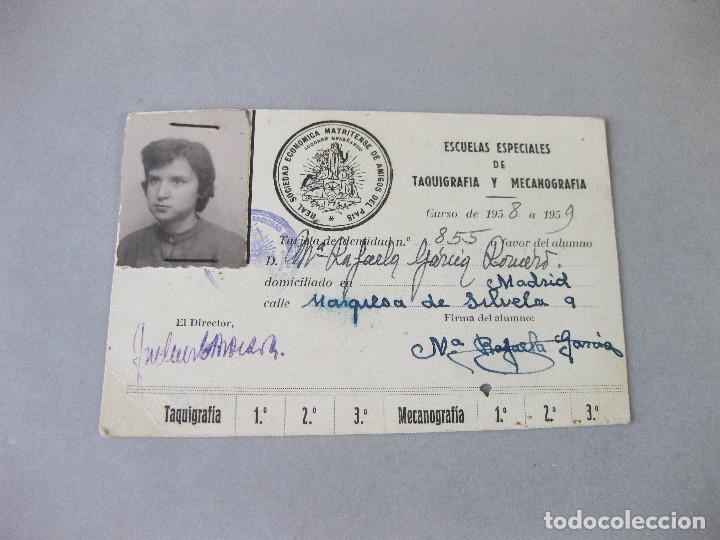 REAL SOCIEDAD ECONOMICA MATRITENSE DE AMIGOS DEL PAIS
SOCORRE ENSEÑANDO
ESCUELAS ESPECIALES
DE
TAQUIGRAFIA Y MECANOGRAFIA
Curso de 1958 a 1959
Tarjeta de identidad n.º 855 a favor del alumno
D. Mª Rafaela Garcia Romero
domiciliado en Madrid
calle Marquesa de Silvela 9
El Director,
Firma del alumno:
Mª Rafaela Garcia
Taquigrafía 1.º 2.º 3.º Mecanografía 1.º 2.º 3.º
todocoleccion.net